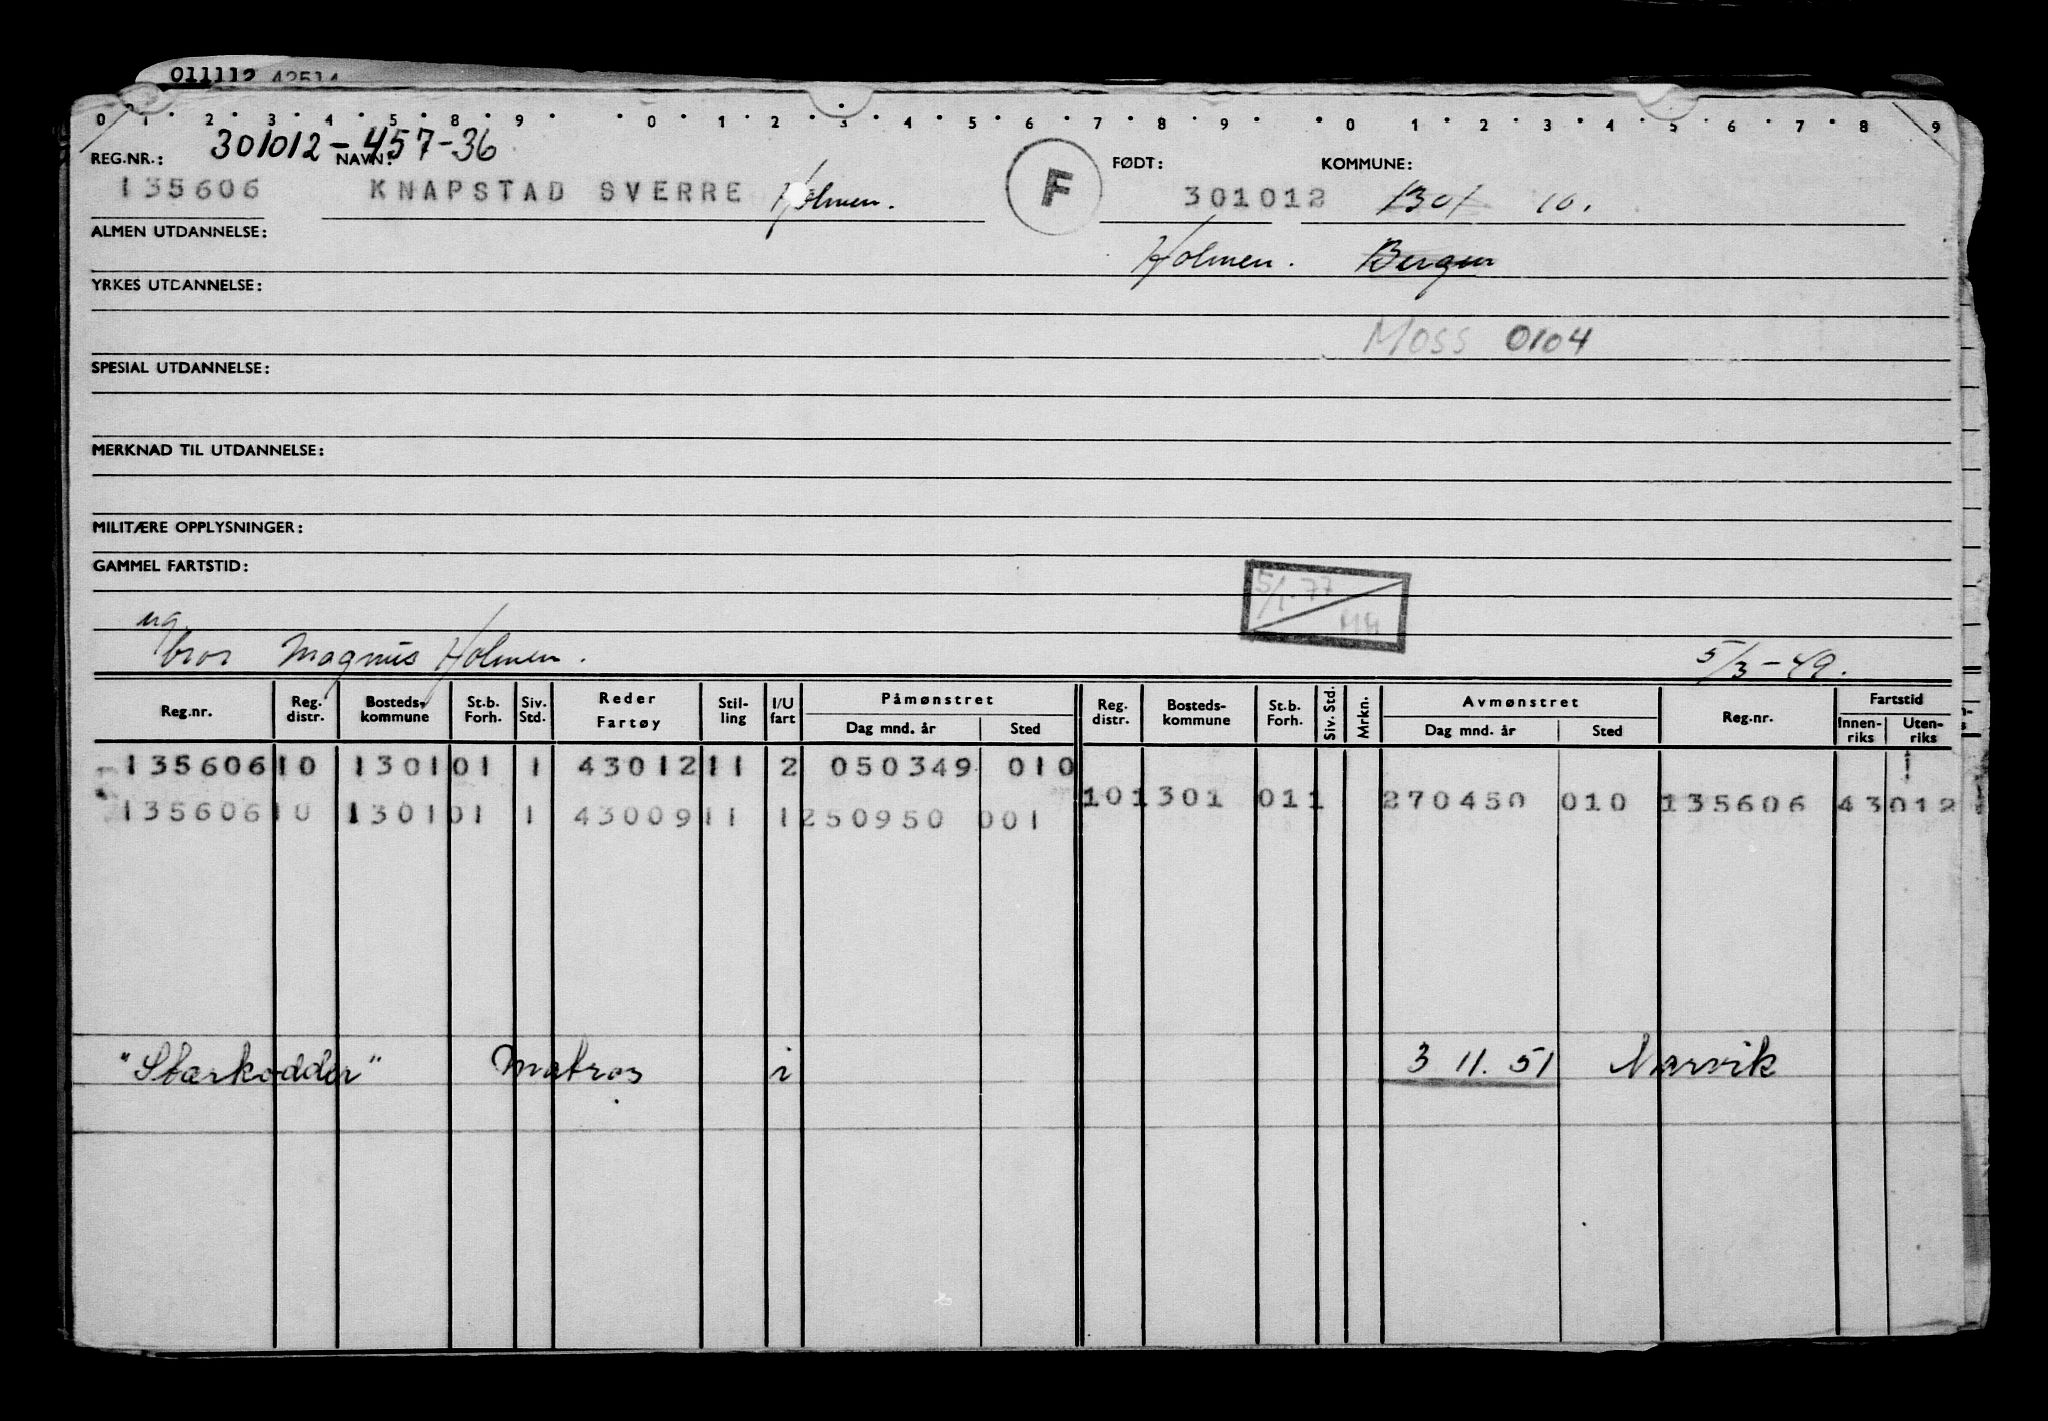 011112 42514
0 1 2 3 4 5 8 9 0 1 2 3 4 5 6 7 8 9 0 1 2 3 4 5 6 7 8 9
301012-457-36
REG.NR.: NAVN: FØDT: KOMMUNE:
135606 KNAPSTAD SVERRE Holmen. F 301012 1301 10.
ALMEN UTDANNELSE:
Holmen. Bergen
YRKES UTDANNELSE:
MOSS 0104
SPESIAL UTDANNELSE:
MERKNAD TIL UTDANNELSE:
MILITÆRE OPPLYSNINGER:
GAMMEL FARTSTID:
5/1.77
ug.
bror Magnus Holmen. 5/3-49.
Reg.nr. Reg. distr. Bosteds- kommune St.b. Forh. Siv. Std. Reder Fartøy Stil- ling I/U fart Påmønstret Dag mnd. år Sted Reg. distr. Bosteds- kommune St.b. Forh. Siv. Std. Mrkn. Avmønstret Dag mnd. år Sted Reg.nr. Fartstid Innen- riks Uten- riks
135606 10 1301 01 1 43012 11 2 050349 010
10 1301 01 1 270450 010 135606 43012
135606 10 1301 01 1 43009 11 1 250950 001
"Starkodder" Matros i 3 11. 51 Narvik